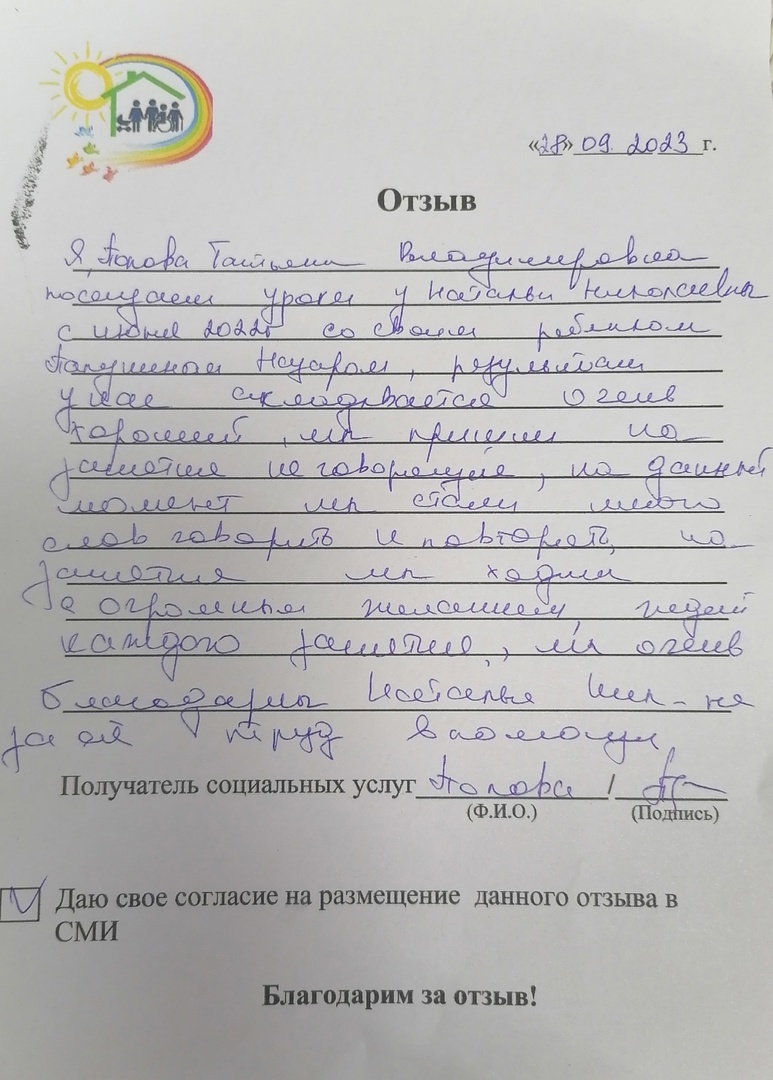 «28» 09. 2023 г.
Отзыв
Я, Попова Татьяна Владимировна
посещаем уроки у Натальи Николаевны
с июня 2022г со своим ребенком
результат
у нас складывается очень
хороший, мы пришли на
занятие не говорящие, на данный
момент мы стали много
слов говорить и повторять, на
занятия мы ходим
с огромным желанием, ждем
каждого занятие, мы очень
благодарны Наталье Ник-не
за её труд в помощи
Получатель социальных услуг Попова /
(Ф.И.О.) (Подпись)
Даю свое согласие на размещение данного отзыва в
СМИ
Благодарим за отзыв!